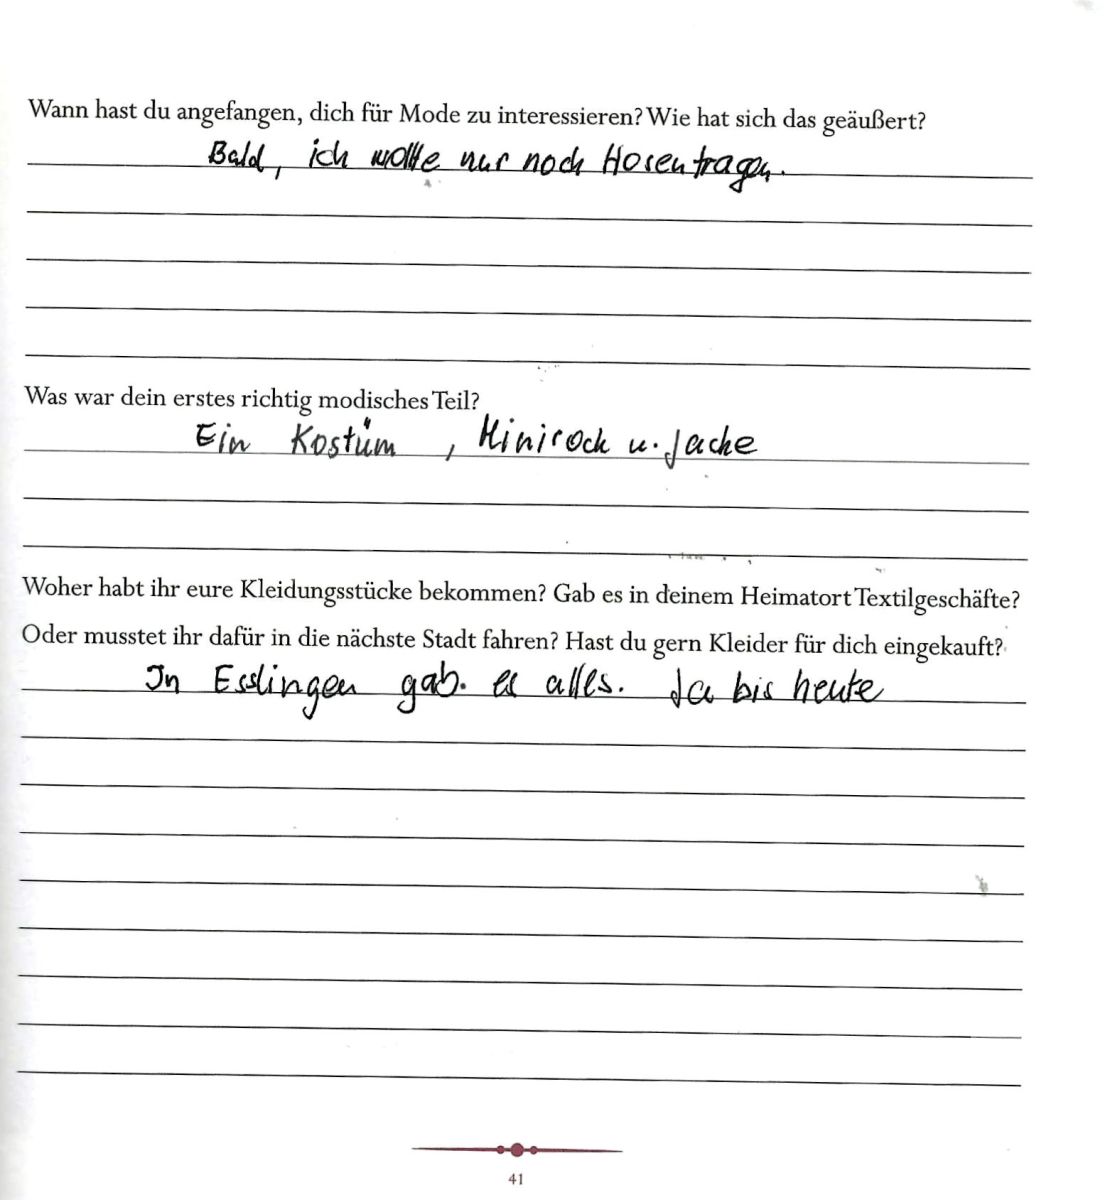 Wann hast du angefangen, dich für Mode zu interessieren? Wie hat sich das geäußert?
Bald, ich wollte nur noch Hosen tragen.
Was war dein erstes richtig modisches Teil?
Ein Kostüm, Minirock u. Jacke
Woher habt ihr eure Kleidungsstücke bekommen? Gab es in deinem Heimatort Textilgeschäfte?
Oder musstet ihr dafür in die nächste Stadt fahren? Hast du gern Kleider für dich eingekauft?
In Esslingen gab. es alles. Ja bis heute
41